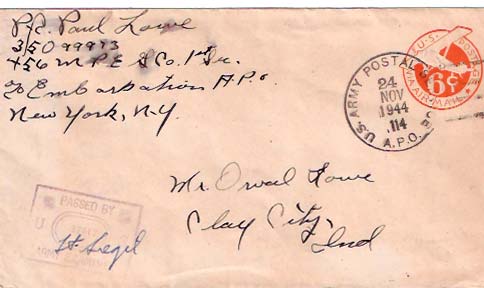 Pfc. Paul Lowe
35099973
456 M.P.E.G. Co. 1st Sec.
℅ Embarkation A.P.o
New York, N.Y.
U.S. POSTAGE
6¢
VIA AIR MAIL
U.S. ARMY POSTAL
24
NOV
1944
114
A.P.O.
Mr. Orval Lowe
Clay City,
Ind
PASSED BY
U
ARMY
Lt Siegel